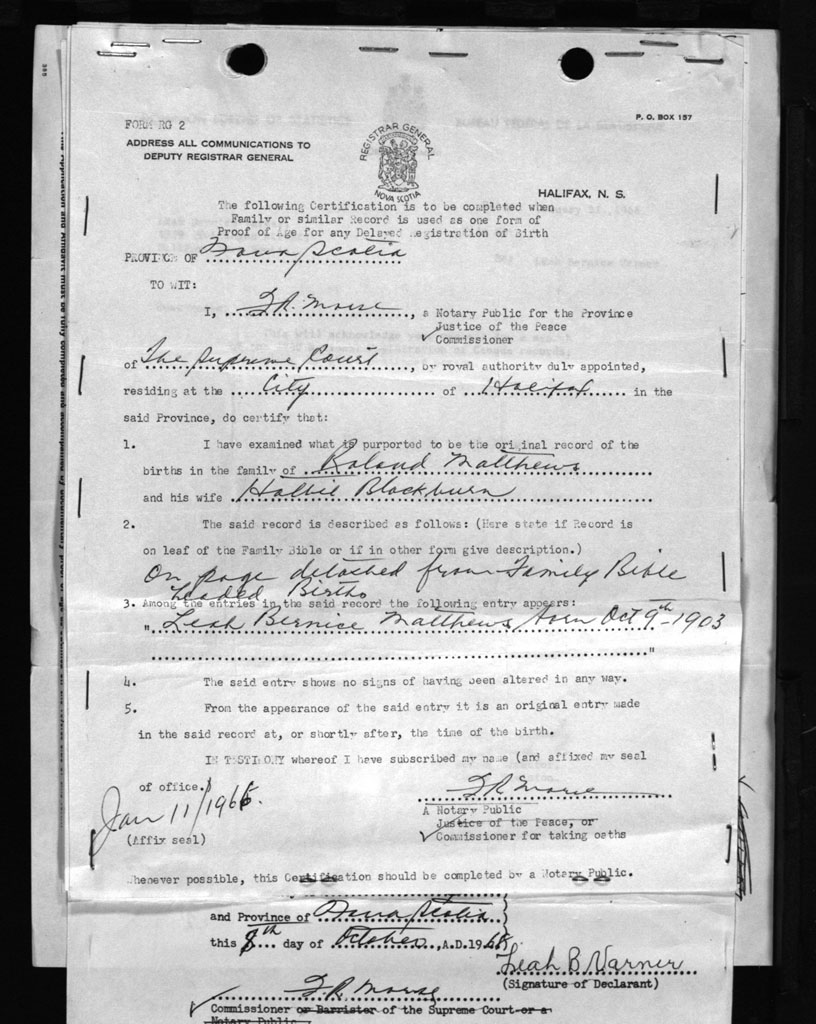 FORM RG 2
P. O. BOX 157
ADDRESS ALL COMMUNICATIONS TO
DEPUTY REGISTRAR GENERAL
REGISTRAR GENERAL
NOVA SCOTIA
HALIFAX, N. S.
The following Certification is to be completed when
Family or similar Record is used as one form of
Proof of Age for any Delayed Registration of Birth
PROVINCE OF Nova Scotia
TO WIT:
I, F.R. Morse, a Notary Public for the Province
Justice of the Peace
✓ Commissioner
of The Supreme Court, by royal authority duly appointed,
residing at the City of Halifax in the
said Province, do certify that:
1. I have examined what is purported to be the original record of the
births in the family of Roland Matthews
and his wife Hattie Blackburn
2. The said record is described as follows: (Here state if Record is
on leaf of the Family Bible or if in other form give description.)
On page detached from Family Bible
headed Births
3. Among the entries in the said record the following entry appears:
" Leah Bernice Matthews, born Oct 9th - 1903
"
4. The said entry shows no signs of having been altered in any way.
5. From the appearance of the said entry it is an original entry made
in the said record at, or shortly after, the time of the birth.
IN TESTIMONY whereof I have subscribed my name (and affixed my seal
of office.)
F R Morse
Jan 11/1966.
A Notary Public
Justice of the Peace, or
(Affix seal)
✓ Commissioner for taking oaths
Whenever possible, this Certification should be completed by a Notary Public.
and Province of Nova Scotia
this 8th day of October, A.D. 1965
Leah B. Varner
(Signature of Declarant)
F.R. Morse
✓ Commissioner or Barrister of the Supreme Court or a
Notary Public